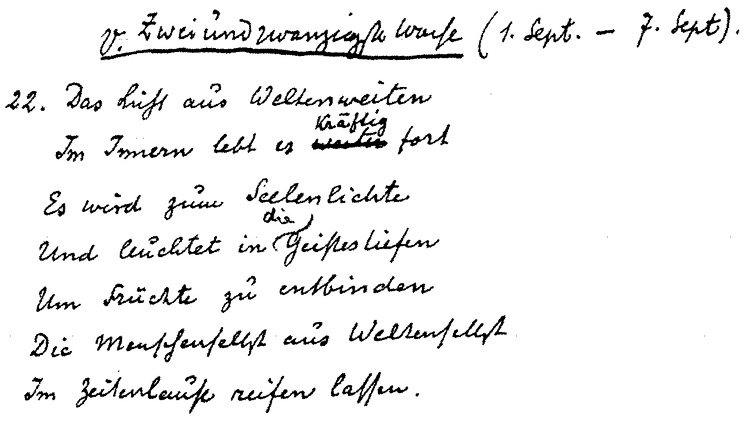 V. Zweiundzwanzigste Woche (1. Sept. – 7. Sept).
22. Das Licht aus Weltenweiten
Kräftig
Im Innern lebt es weiter fort
Es wird zum Seelenlichte
die
Und leuchtet in Geistestiefen
Um Früchte zu entbinden
Die Menschenselbst aus Weltenselbst
Im Zeitenlaufe reifen lassen.